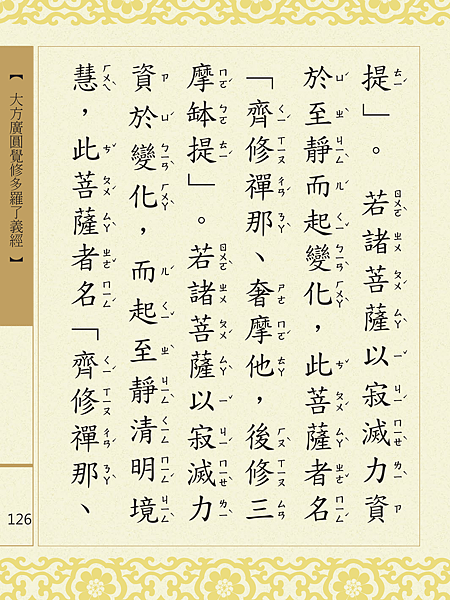 提」。 若諸菩薩以寂滅力資
於至靜而起變化，此菩薩者名
「齊修禪那、奢摩他，後修三
摩缽提」。若諸菩薩以寂滅力
資於變化，而起至靜清明境
慧，此菩薩者名「齊修禪那、
【大方廣圓覺修多羅了義經】
126